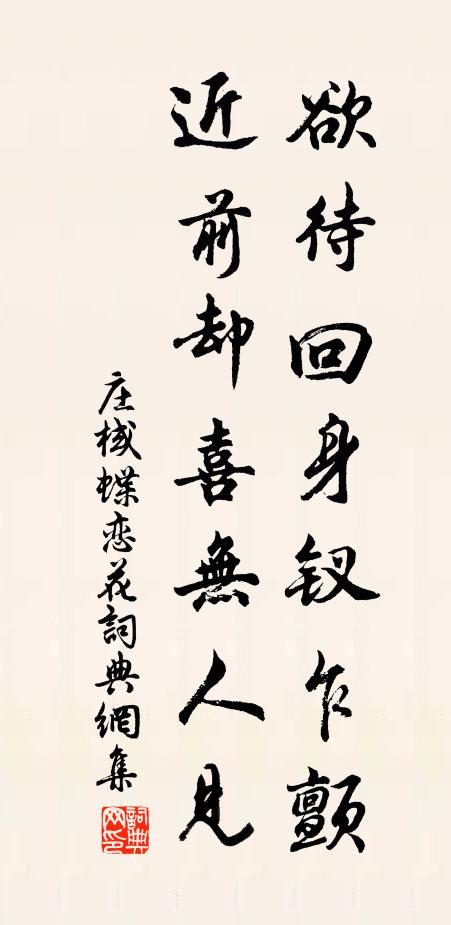 欲待回身钗乍颤
近前却喜無人見
庄棫蝶恋花詞典網集
詞典網印